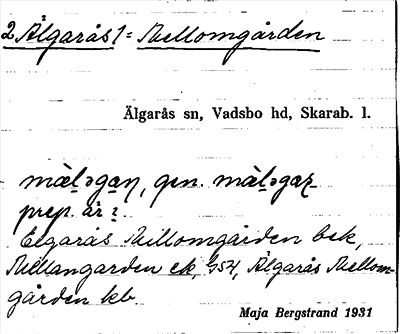 2 Älgarås 1 = Mellomgården
Älgarås sn, Vadsbo hd, Skarab. l.
mæ̀ḷəgaṇ, gen. mæ̀ḷəgaẓ
prep. är i
Elgarås Millomgården bek,
Millangarden ek, GSH, Älgarås Mellom-
gården kb
Maja Bergstrand 1931